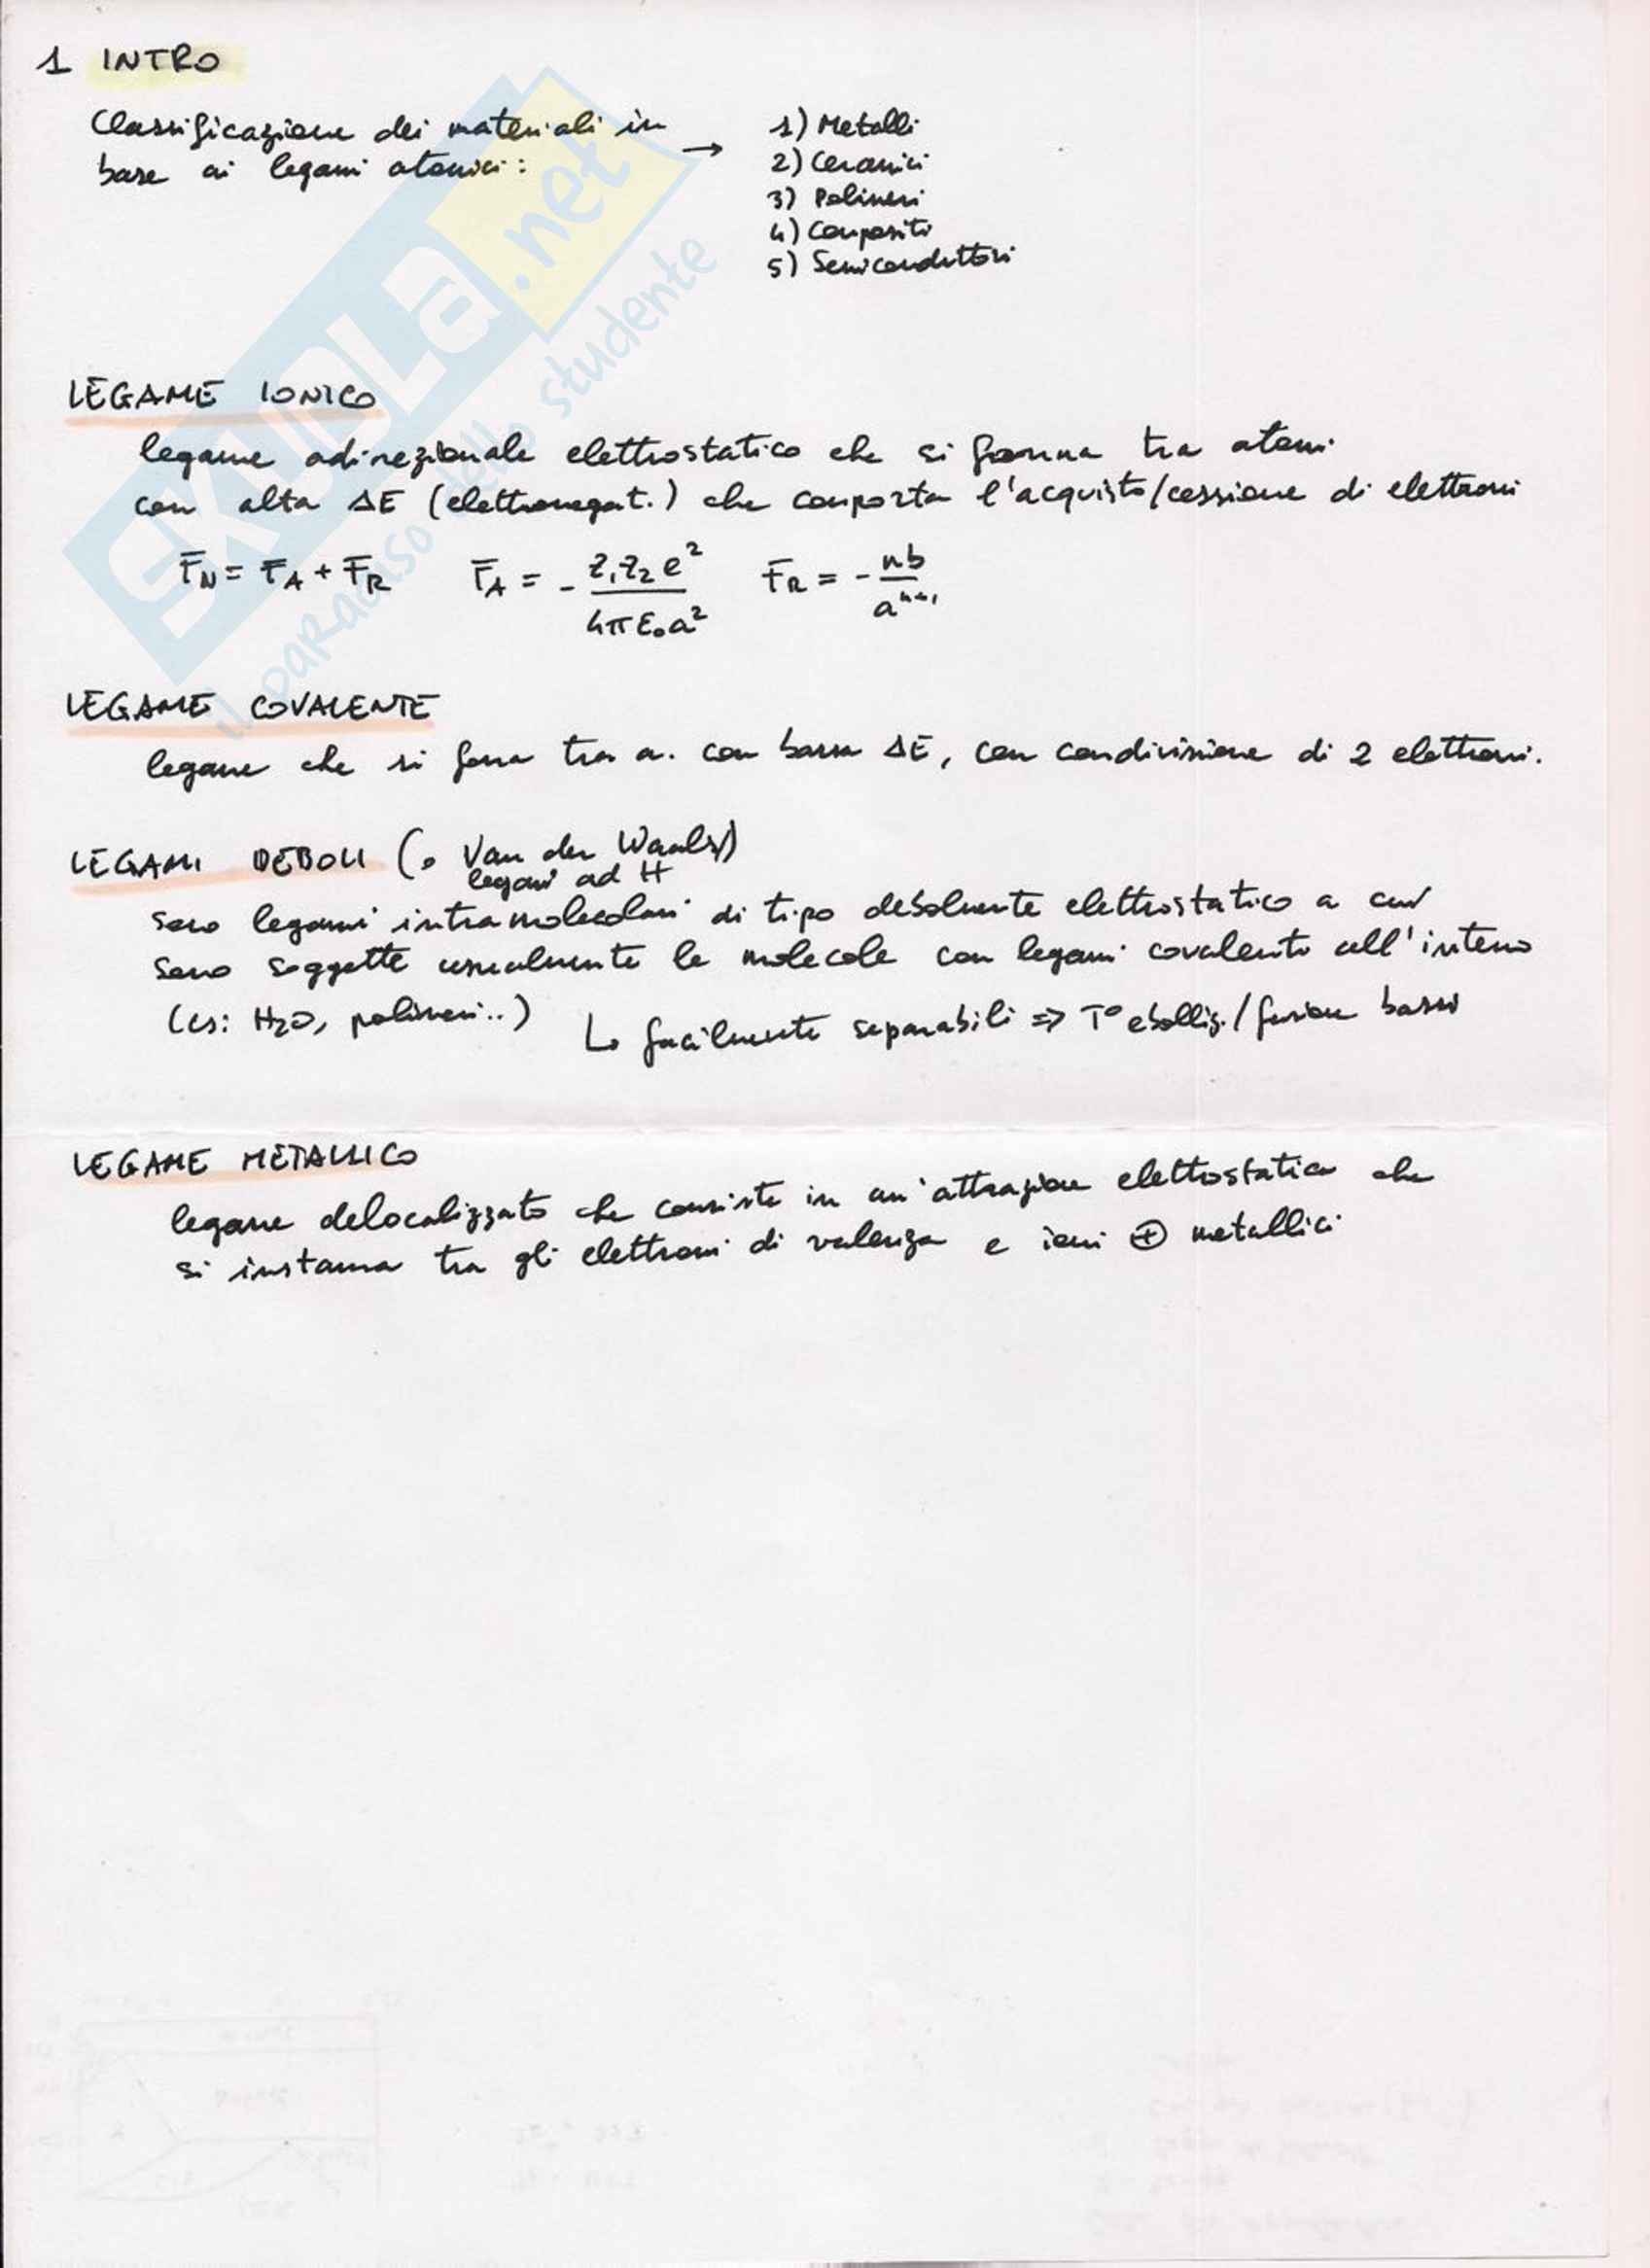 1 INTRO
Classificazione dei materiali in
base ai legami atomici:
→
1) Metalli
2) Ceramici
3) Polimeri
4) Compositi
5) Semiconduttori
LEGAME IONICO
legame adirezionale elettrostatico che si forma tra atomi
con alta ΔE (elettronegat.) che comporta l'acquisto/cessione di elettroni
F_N = F_A + F_R   F_A = - Z₁Z₂e² / 4πε₀a²   F_R = - nb / aⁿ⁺¹
LEGAME COVALENTE
legame che si forma tra a. con bassa ΔE, con condivisione di 2 elettroni.
LEGAMI DEBOLI (o Van der Waals)
legami ad H
sono legami intramolecolari di tipo debolmente elettrostatico a cui
sono soggette usualmente le molecole con legami covalenti all'interno
(es: H₂O, polimeri..) ↳ facilmente separabili ⇒ T° eboliz./fusione bassi
LEGAME METALLICO
legame delocalizzato che consiste in un'attrazione elettrostatica che
si instaura tra gli elettroni di valenza e ioni ⊕ metallici
SKUOLA.net
il paradiso dello studente